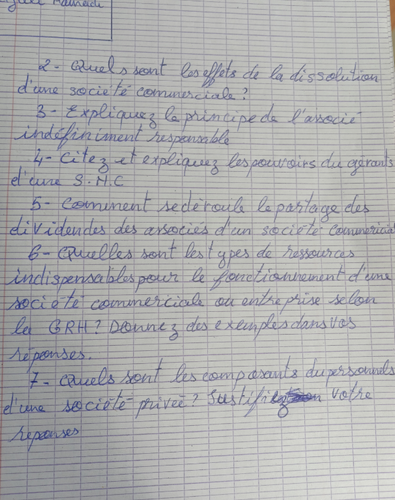 2- Quels sont les effets de la dissolution
d'une société commerciale?
3- Expliquez le principe de l'associé
indéfiniment responsable
4- citez et expliquez les pouvoirs du gérants
d'une S.N.C
5- comment se déroule le partage des
dividendes des associés d'un société commercial
6- Quelles sont les types de ressources
indispensables pour le fonctionnement d'une
société commerciale ou entreprise selon
la GRH? Donnez des exemples dans vos
réponses.
7- Quels sont les composants du personnels
d'une société privée? Justifiez votre
reponses